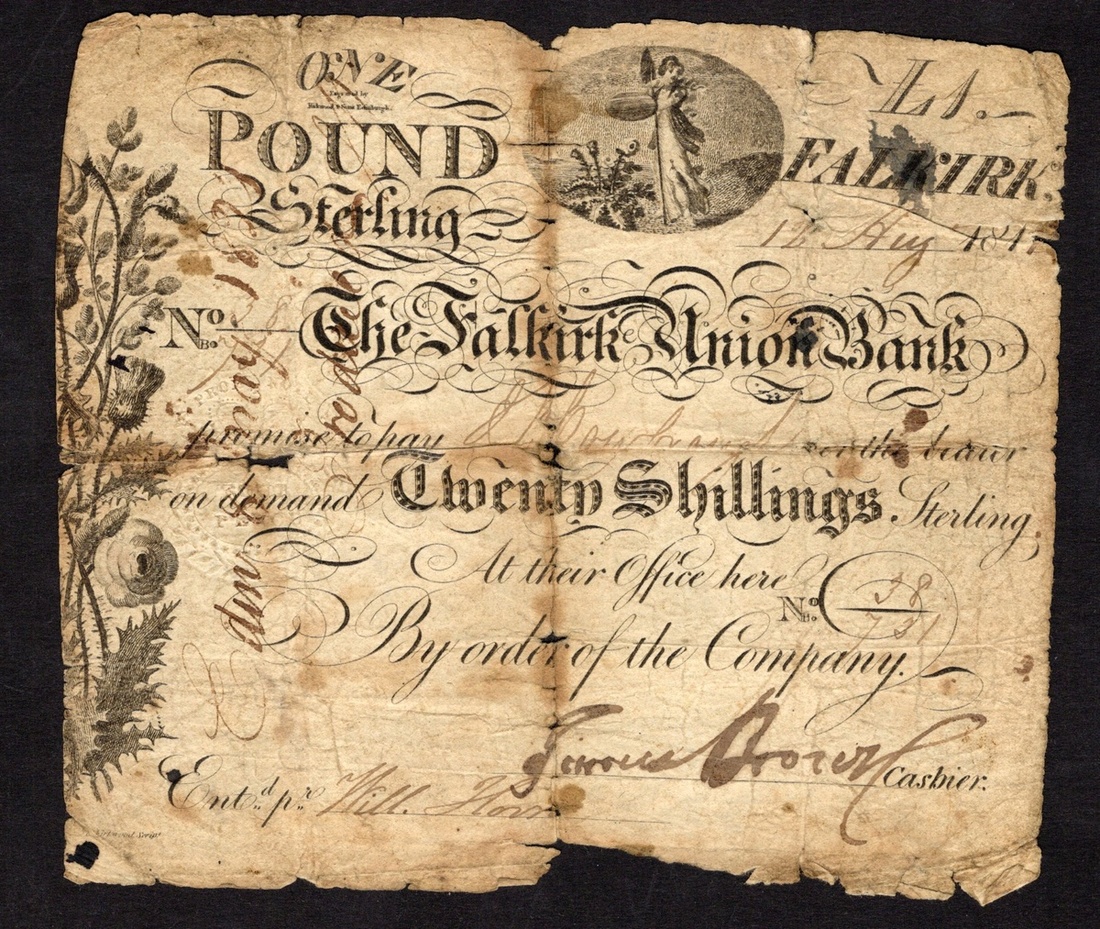 ONE
Engraved by
Kirkwood & Sons Edinburgh.
POUND
Sterling
L1.
FALKIRK.
12 Aug 181
No.
The Falkirk Union Bank
promise to pay or the bearer
on demand Twenty Shillings Sterling
At their Office here
No. 38
731
By order of the Company.
James Brown Cashier.
Entd. pr. Will.
Kirkwood Sculpt
Edinr. May 18